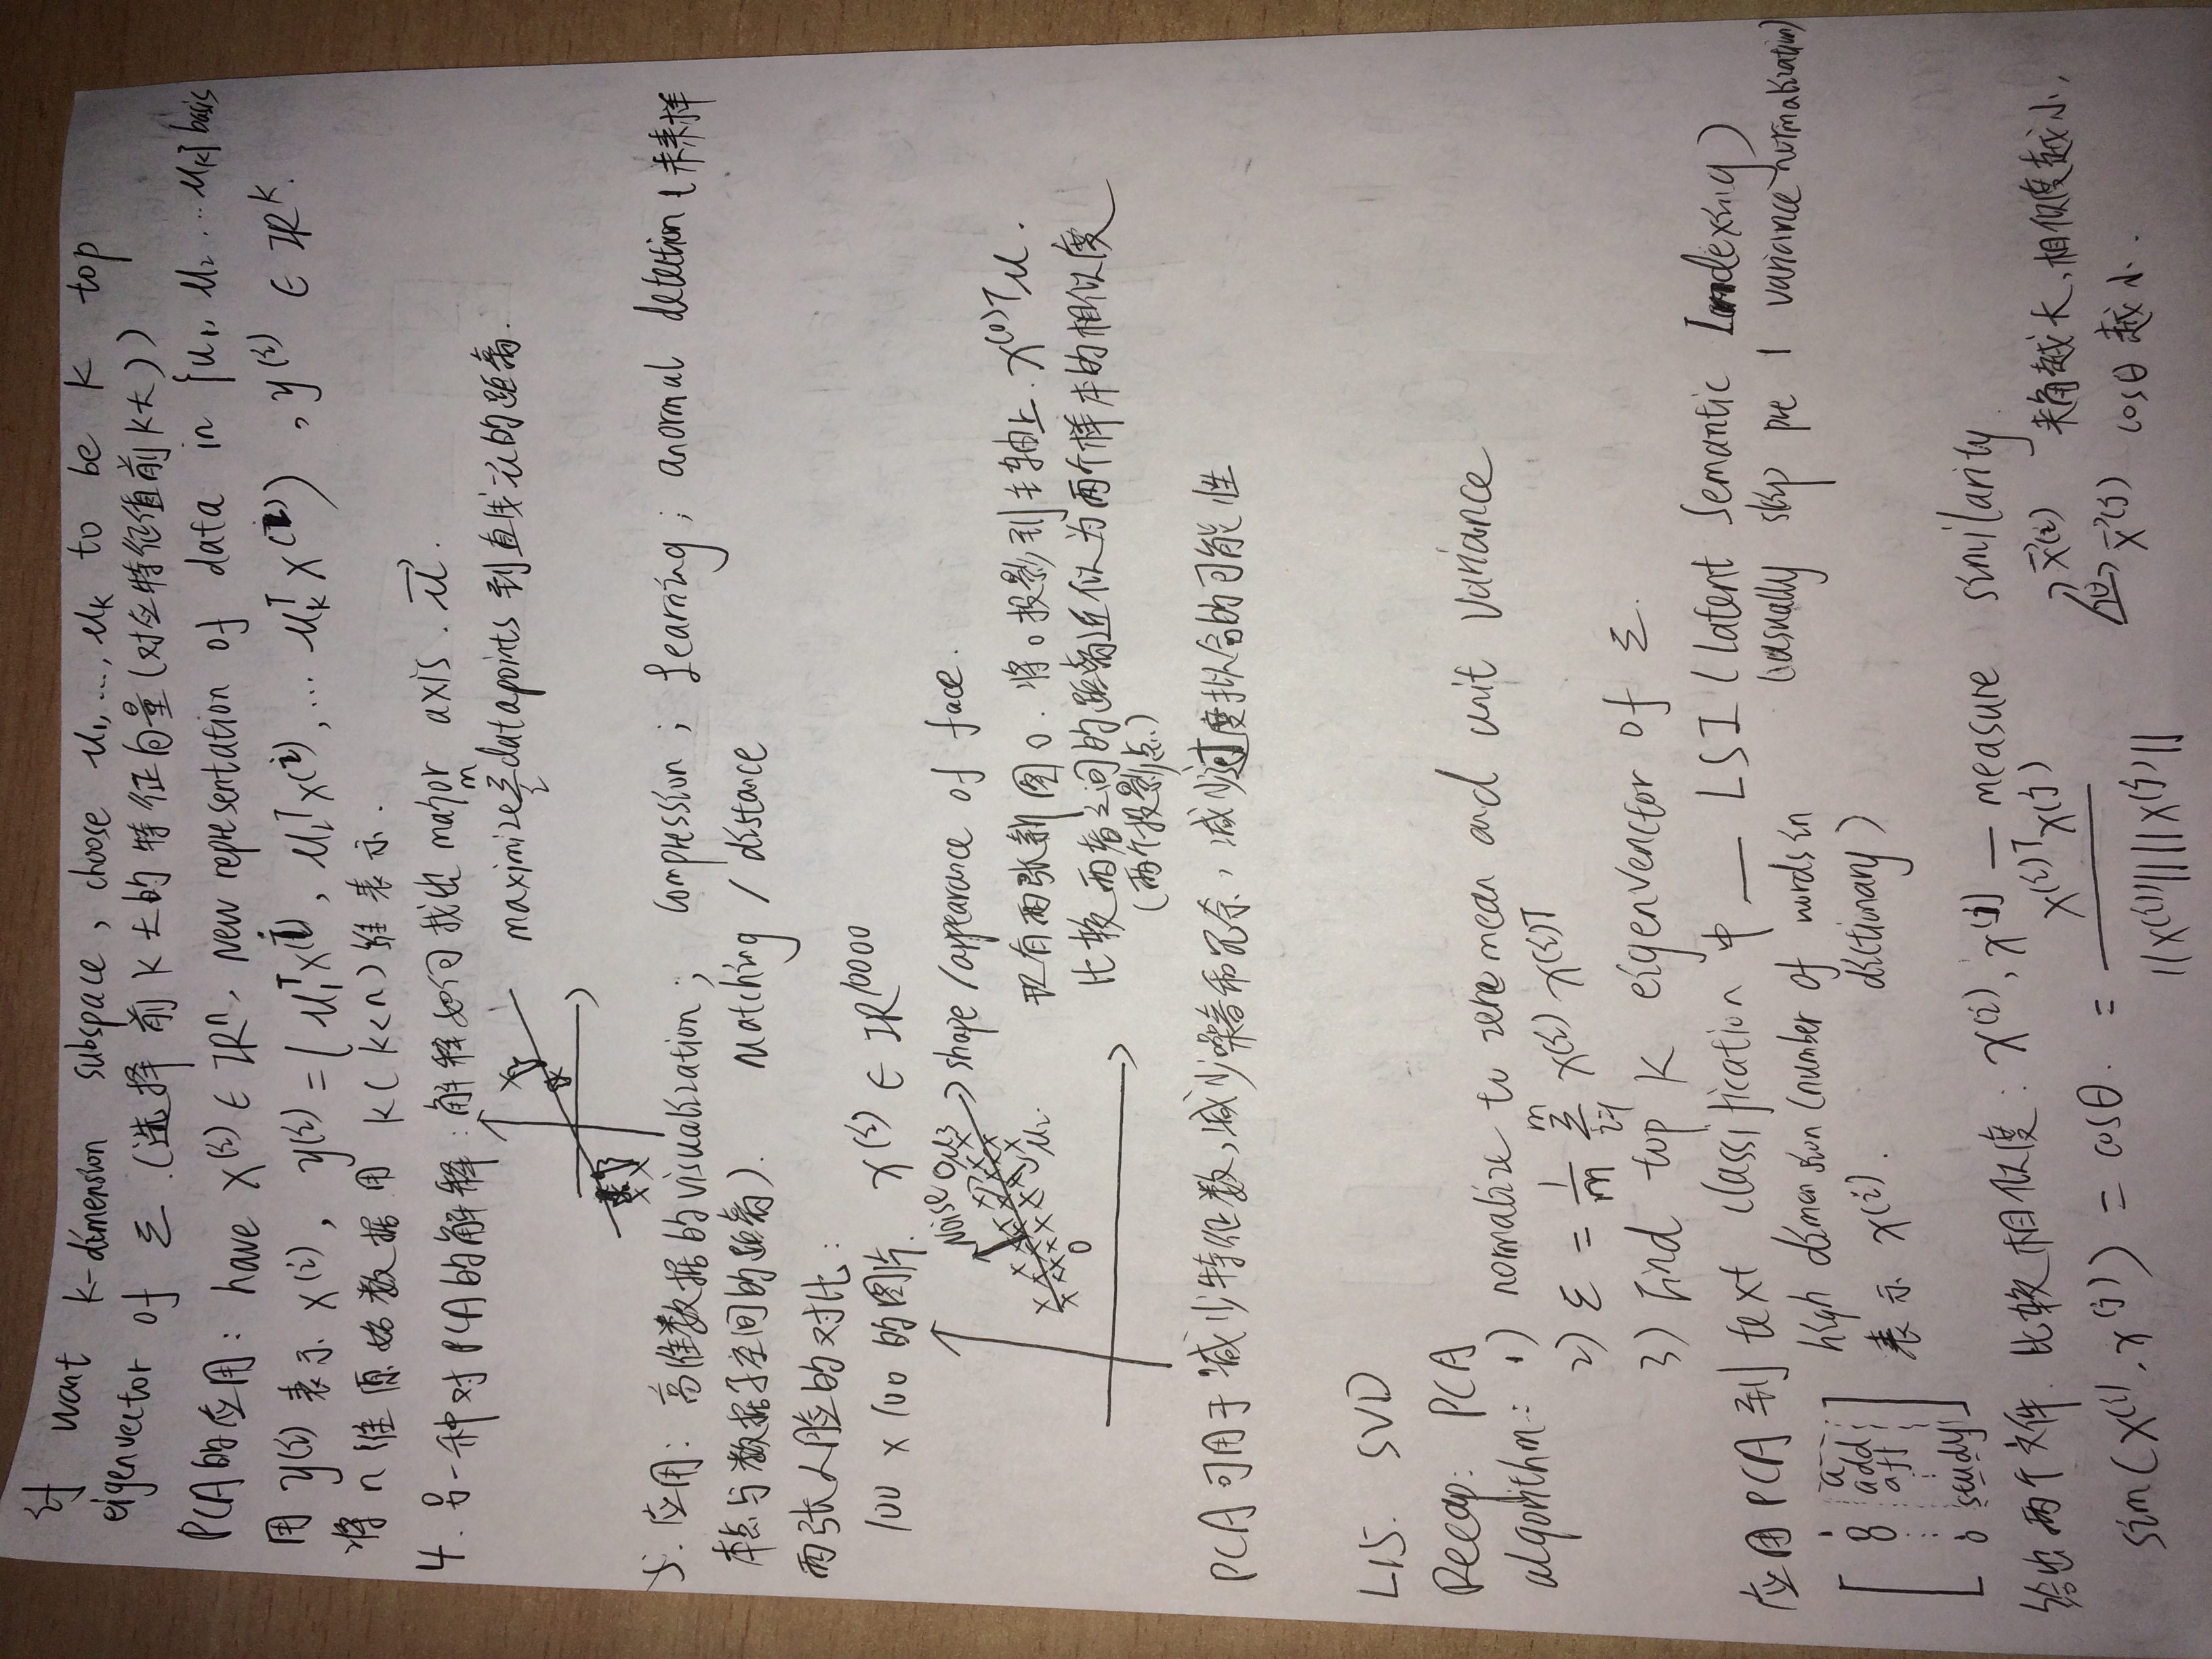 if want k-dimension subspace, choose u₁, ..., uₖ to be k top
eigenvector of Σ. (选择前k大的特征向量(对应特征值前k大))
PCA的应用: have x⁽ⁱ⁾ ∈ ℝⁿ, New representation of data in {u₁, u₂ ... uₖ} basis
用 y⁽ⁱ⁾ 表示 x⁽ⁱ⁾, y⁽ⁱ⁾ = (u₁ᵀx⁽ⁱ⁾, u₂ᵀx⁽ⁱ⁾, ... uₖᵀx⁽ⁱ⁾), y⁽ⁱ⁾ ∈ ℝᵏ.
将n维原始数据用 k(k<n)维表示.
4. 另一种对PCA的解释: 解释如何找出 major axis. u⃗.
maximize Σᵢᵐ datapoints 到直线u⃗的距离.
5. 应用: 高维数据的visualization; compression; Learning; anormal detection (未来样
本点与数据子空间的距离). Matching / distance
两张人脸的对比:
100 × 100 的图片. x⁽ⁱ⁾ ∈ ℝ¹⁰⁰⁰⁰
Noise u₃
shape / appearance of face.
u₂
现有两张新图o. 将o投影到主轴上. x⁽⁰⁾ᵀu.
比较两者之间的距离近似为两个样本的相似度
(两个投影点)
PCA可用于减少特征数, 减少噪音和冗余, 减少过度拟合的可能性
L15. SVD
Recap: PCA
algorithm: 1) normalize to zero mean and unit variance
2) Σ = 1/m Σᵢ₌₁ᵐ x⁽ⁱ⁾ x⁽ⁱ⁾ᵀ
3) Find top k eigenvenctor of Σ.
应用PCA到 text classification 中 — LSI (Latent Semantic Indexing)
(usually skip pre 1 variance normalization)
high dimension (number of words in
dictionary)
表示 x⁽ⁱ⁾.
a
add
aff
⋮
study
给出两个文件. 比较相似度: x⁽ⁱ⁾, x⁽ʲ⁾ — measure similarity.
sim(x⁽ⁱ⁾, x⁽ʲ⁾) = cosθ. = x⁽ⁱ⁾ᵀx⁽ʲ⁾ / ||x⁽ⁱ⁾|| ||x⁽ʲ⁾||
x⃗⁽ⁱ⁾
θ
x⃗⁽ʲ⁾
夹角越大, 相似度越小,
cosθ 越小.